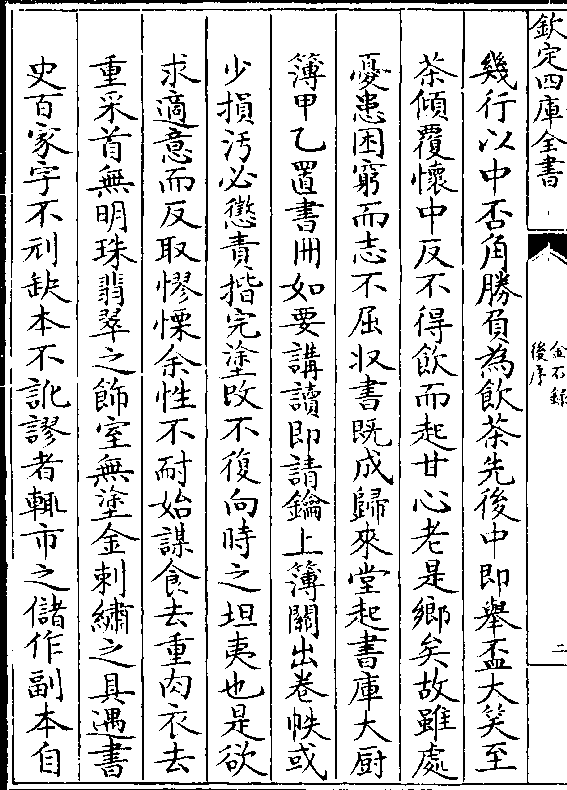 欽定四庫全書
金石錄
後序
二
幾行以中否角勝負為飲茶先後中即舉盃大笑至
茶傾覆懷中反不得飲而起甘心老是鄉矣故雖處
憂患困窮而志不屈収書既成歸來堂起書庫大厨
簿甲乙置書冊如要講讀即請鑰上簿關出卷帙或
少損汚必懲責揩完塗改不復向時之坦夷也是欲
求適意而反取憀慄余性不耐始謀食去重肉衣去
重采首無明珠翡翠之飾室無塗金刺繡之具遇書
史百家字不刓缺本不訛謬者輒市之儲作副本自